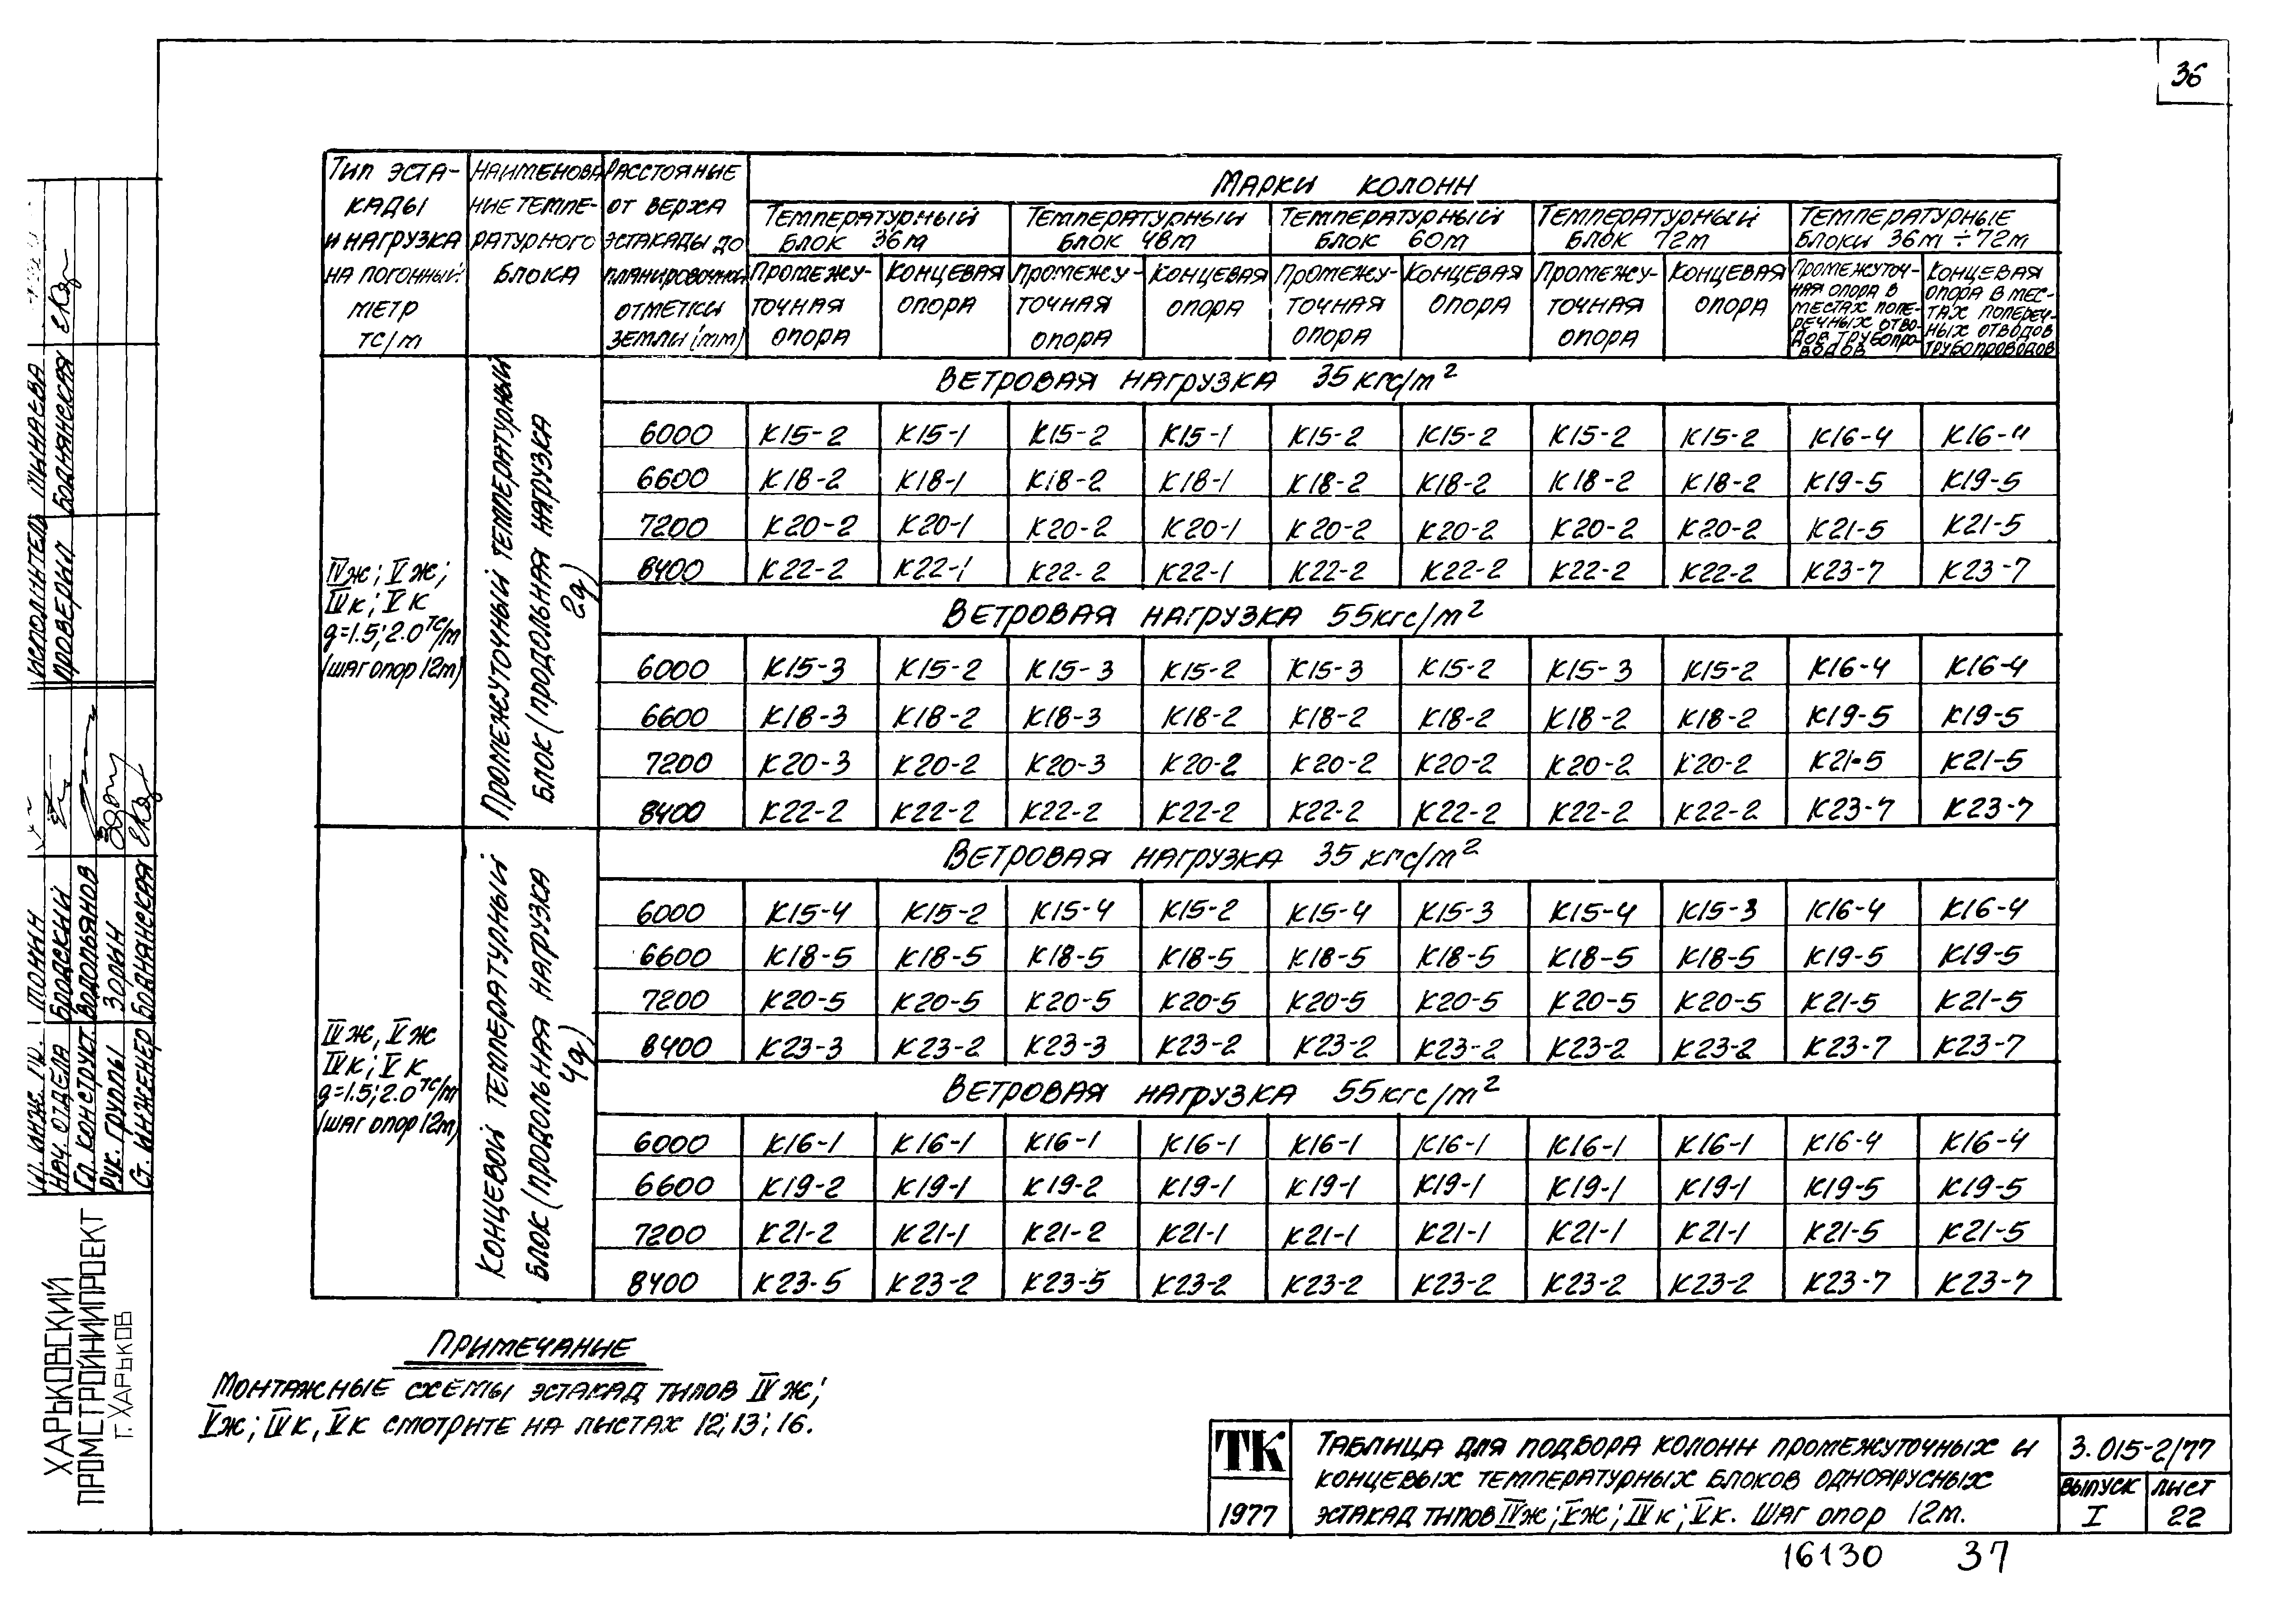 36
Тип эста-
кады
и нагрузка
на погонный
метр
тс/м
Наименова
ние темпе-
ратурного
блока
Расстояние
от верха
эстакады до
планировочной
отметки
земли (мм)
Марки колонн
Температурный
блок 36м
Температурный
блок 48м
Температурный
блок 60м
Температурный
блок 72м
Температурные
блоки 36м ÷ 72м
Промежу-
точная
опора
Концевая
опора
Промежу-
точная
опора
Концевая
опора
Промежу-
точная
опора
Концевая
опора
Промежу-
точная
опора
Концевая
опора
Промежуточ-
ная опора в
местах попе-
речных отво-
дов трубопро-
водов
Концевая
опора в мес-
тах попереч-
ных отводов
трубопроводов
IVж; Vж;
IVк; Vк
g=1.5; 2.0 тс/м
(шаг опор 12м)
Промежуточный температурный
блок (продольная нагрузка
2g)
Ветровая нагрузка 35 кгс/м²
6000 К15-2 К15-1 К15-2 К15-1 К15-2 К15-2 К15-2 К15-2 К16-4 К16-4
6600 К18-2 К18-1 К18-2 К18-1 К18-2 К18-2 К18-2 К18-2 К19-5 К19-5
7200 К20-2 К20-1 К20-2 К20-1 К20-2 К20-2 К20-2 К20-2 К21-5 К21-5
8400 К22-2 К22-1 К22-2 К22-1 К22-2 К22-2 К22-2 К22-2 К23-7 К23-7
Ветровая нагрузка 55кгс/м²
6000 К15-3 К15-2 К15-3 К15-2 К15-3 К15-2 К15-3 К15-2 К16-4 К16-4
6600 К18-3 К18-2 К18-3 К18-2 К18-2 К18-2 К18-2 К18-2 К19-5 К19-5
7200 К20-3 К20-2 К20-3 К20-2 К20-2 К20-2 К20-2 К20-2 К21-5 К21-5
8400 К22-2 К22-2 К22-2 К22-2 К22-2 К22-2 К22-2 К22-2 К23-7 К23-7
IVж, Vж
IVк; Vк
g=1.5; 2.0 тс/м
(шаг опор 12м)
Концевой температурный
блок (продольная нагрузка
4g)
Ветровая нагрузка 35 кгс/м²
6000 К15-4 К15-2 К15-4 К15-2 К15-4 К15-3 К15-4 К15-3 К16-4 К16-4
6600 К18-5 К18-5 К18-5 К18-5 К18-5 К18-5 К18-5 К18-5 К19-5 К19-5
7200 К20-5 К20-5 К20-5 К20-5 К20-5 К20-5 К20-5 К20-5 К21-5 К21-5
8400 К23-3 К23-2 К23-3 К23-2 К23-2 К23-2 К23-2 К23-2 К23-7 К23-7
Ветровая нагрузка 55кгс/м²
6000 К16-1 К16-1 К16-1 К16-1 К16-1 К16-1 К16-1 К16-1 К16-4 К16-4
6600 К19-2 К19-1 К19-2 К19-1 К19-1 К19-1 К19-1 К19-1 К19-5 К19-5
7200 К21-2 К21-1 К21-2 К21-1 К21-1 К21-1 К21-1 К21-1 К21-5 К21-5
8400 К23-5 К23-2 К23-5 К23-2 К23-2 К23-2 К23-2 К23-2 К23-7 К23-7
Примечание
Монтажные схемы эстакад типов IVж;
Vж; IVк, Vк смотрите на листах 12; 13; 16.
ТК
1977
Таблица для подбора колонн промежуточных и
концевых температурных блоков одноярусных
эстакад типов IVж; Vж; IVк; Vк. Шаг опор 12м.
3.015-2/77
выпуск
I
лист
22
16130 37
Исполнитель Минаева
Проверил Боднянская
Гл. инж. пр. Тонин
Нач. отдела Бродский
Гл. конструкт. Водопьянов
Рук. группы Зорин
Ст. инженер Боднянская
Харьковский
Промстройниипроект
г. Харьков